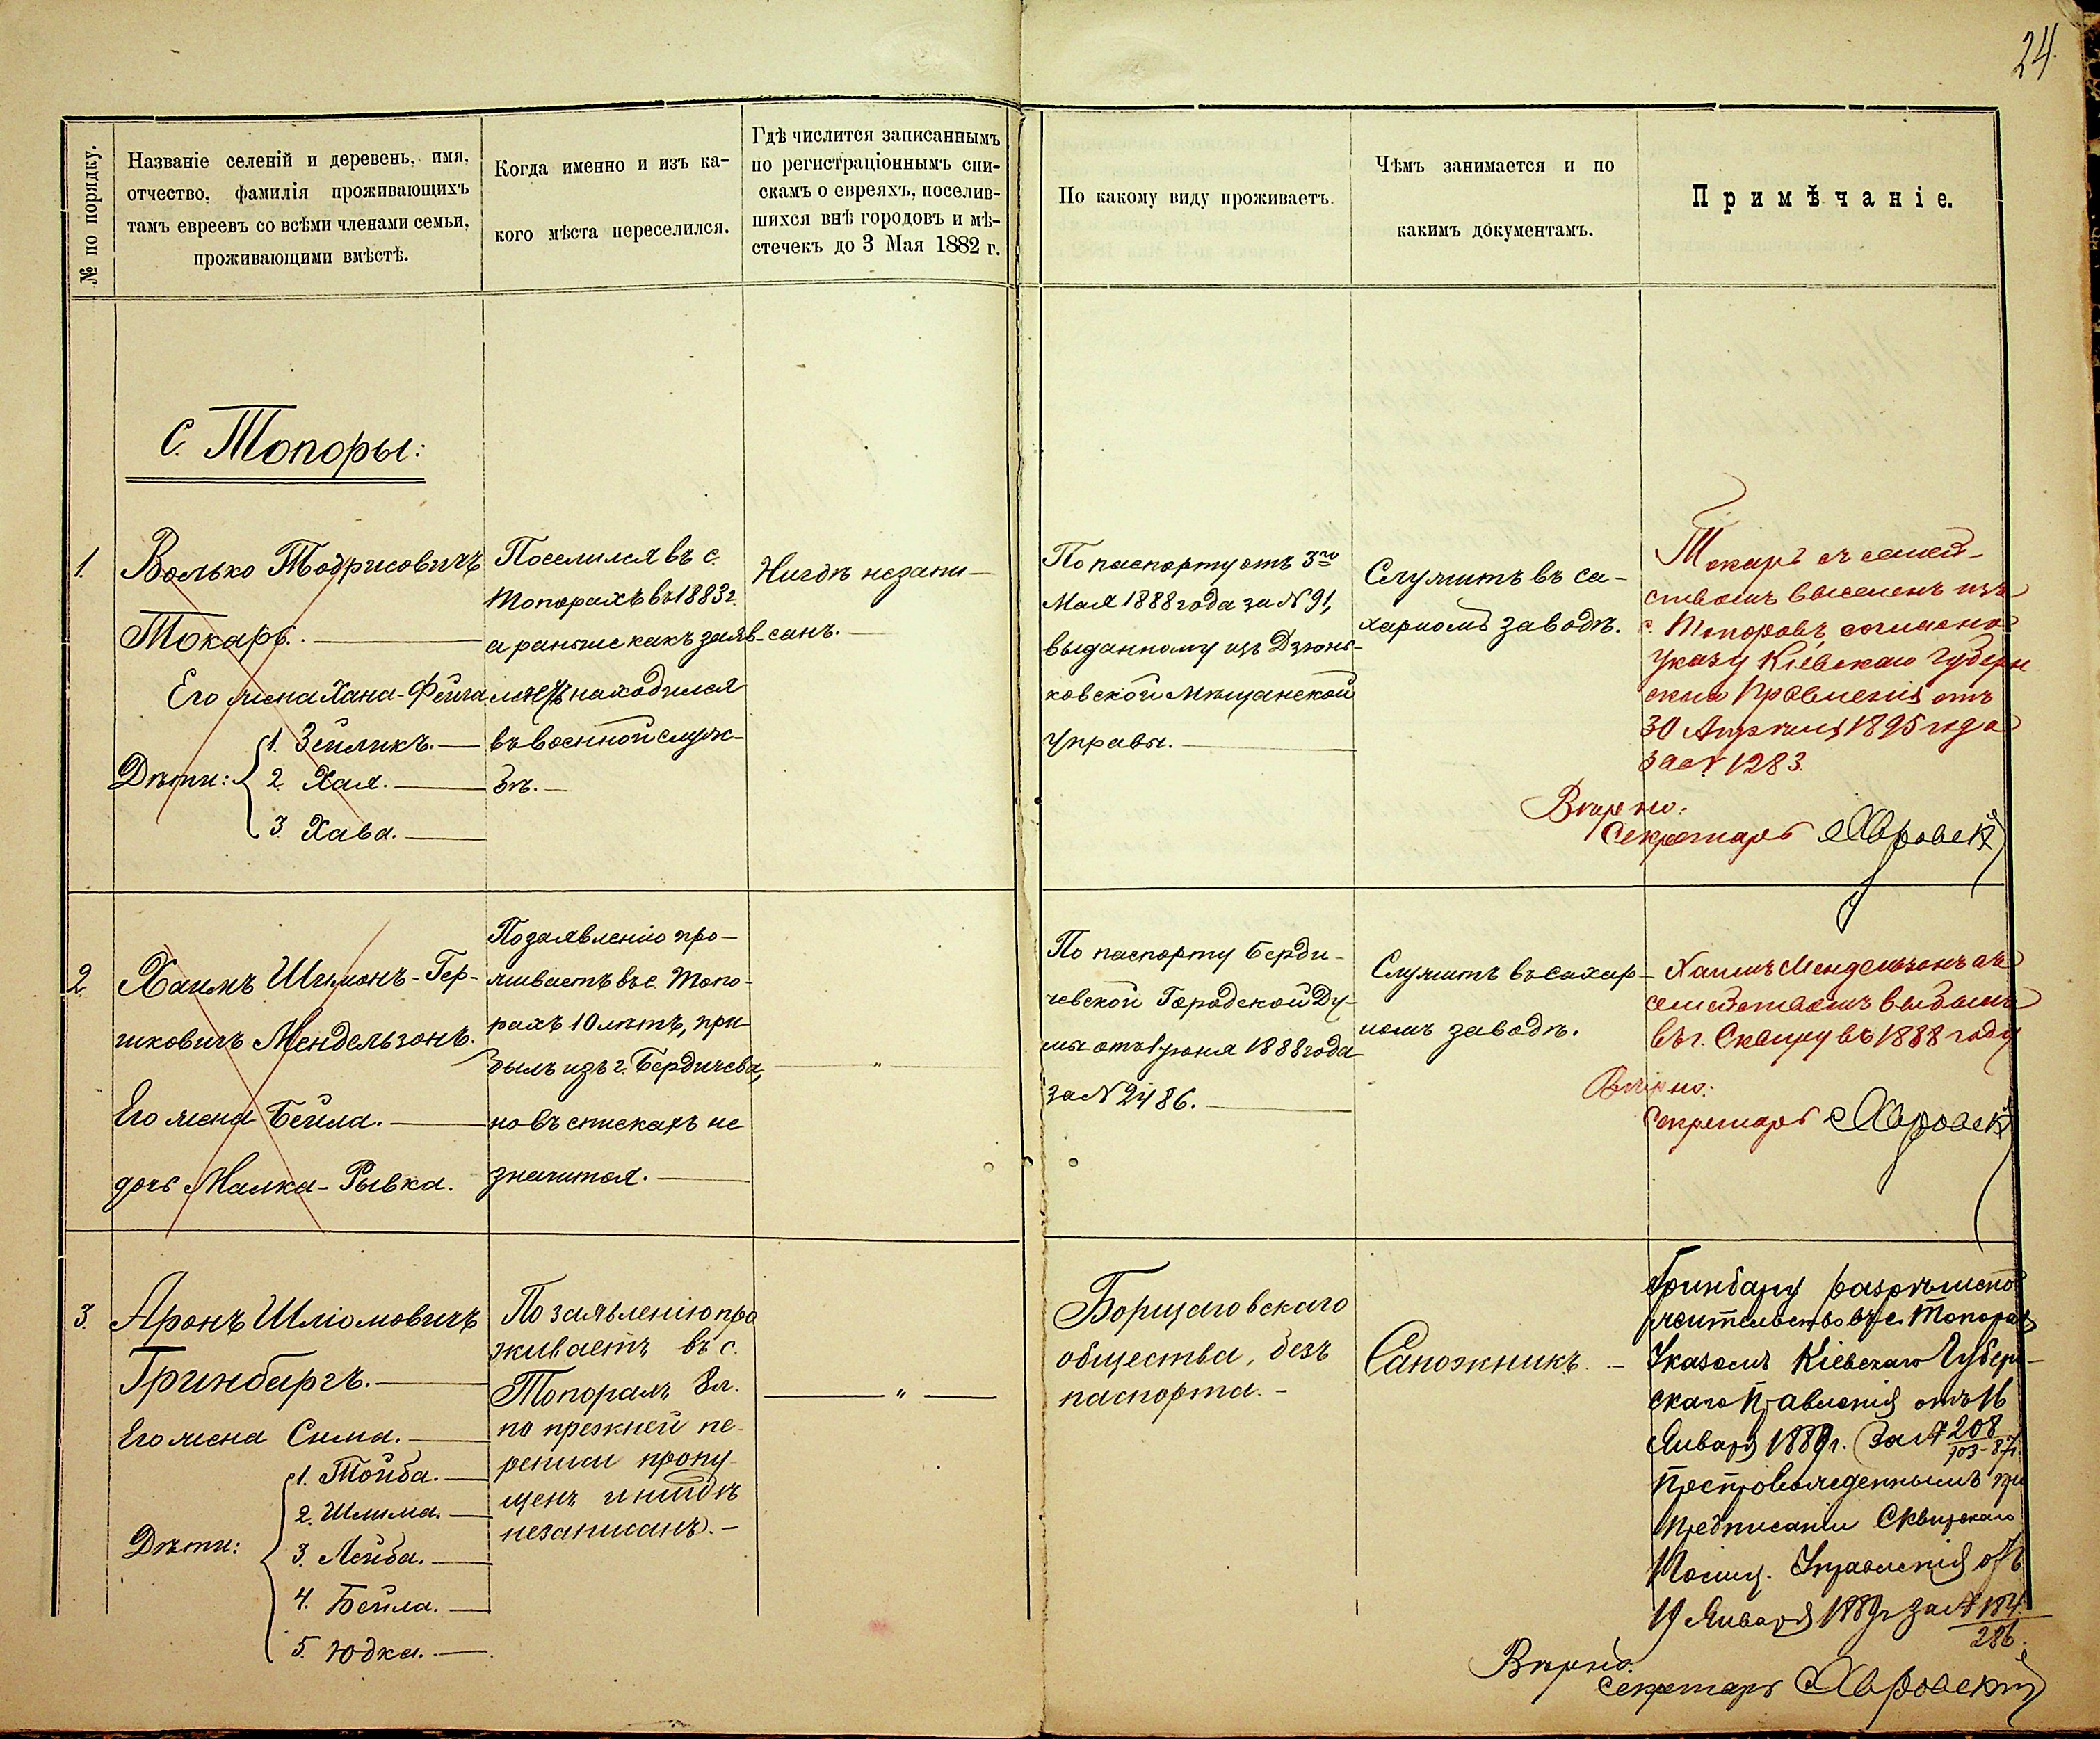 24.
№ по порядку.
Названіе селеній и деревень, имя,
отчество, фамилія проживающихъ
тамъ евреевъ со всѣми членами семьи,
проживающими вмѣстѣ.
Когда именно и изъ ка-
кого мѣста переселился.
Гдѣ числится записаннымъ
по регистраціоннымъ спи-
скамъ о евреяхъ, поселив-
шихся внѣ городовъ и мѣ-
стечекъ до 3 Мая 1882 г.
По какому виду проживаетъ.
Чѣмъ занимается и по
какимъ документамъ.
Примѣчаніе.
С. Топоры:
1.
Волько Тодрисовичъ
Токарь.
Его жена Хана-Фейга
Дѣти:
1. Зейликъ.
2. Хая.
3. Хава.
Поселился въ с.
Топорахъ въ 1883 г.
а раньше какъ заяв-
находился
въ военной служ-
бѣ.
Нигдѣ незапи-
санъ.
По паспорту отъ 3го
Мая 1888 года за № 91,
выданному изъ Дзюнь-
ковской Мѣщанской
Управы.
Служитъ въ са-
харномъ заводѣ.
Токарь съ семей-
ствомъ выселенъ изъ
с. Топоровъ согласно
указу Кіевскаго Губерн
скаго Правленія отъ
30 Апрѣля 1895 года
за № 1283.
Вѣрно:
Секретарь
2.
Хаимъ Шимонъ-Гер-
шковичъ Мендельзонъ.
Его жена Бейла.
дочь Малка-Рывка.
По заявленію про-
живаетъ въ с. Топо-
рахъ 10 лѣтъ, при
былъ изъ г. Бердичева,
но въ спискахъ не
значится.
"
По паспорту Берди-
чевской Городской Ду-
мы отъ 1 іюня 1888 года
за № 2486.
Служитъ въ сахар-
номъ заводѣ.
Хаимъ Мендельзонъ съ
семействомъ выбылъ
въ г. Сквиру въ 1888 году
Вѣрно:
Секретарь
3.
Аронъ Шліомовичъ
Гринбаргъ.
Его жена Сима.
Дѣти:
1. Тойба.
2. Шлима.
3. Лейба.
4. Бейла.
5. Юдка.
По заявленію про
живаетъ въ с.
Топорахъ 8 л.
по прежней пе
реписи пропу-
щенъ и нигдѣ
незаписанъ.
"
Борщаговскаго
общества, безъ
паспорта.
Сапожникъ.
Гринбаргу разрѣшено
жительство въ с. Топорахъ
Указомъ Кіевскаго Губерн-
скаго Правленія отъ 16
Января 1889 г. за № 208
703-87 г.
препровожденнымъ при
предписаніи Сквирскаго
Полиц. Управленія отъ
19 Января 1889 г за № 184.
286.
Вѣрно:
Секретарь